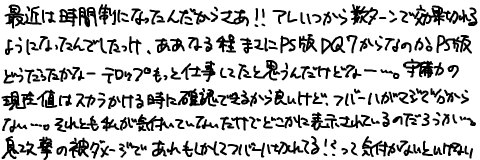 最近は時間制になったんだからさあ!! アレいつから数ターンで効果切れる
ようになったんでしたっけ、ああなる程まさにPS版DQ7からなのかな PS版
どうだったかなー テロップもっと仕事してたと思うんだけどなー…。守備力の
現在値はスカラかける時に確認できるから良いけど、フバーハがマジで分から
ない…。それとも私が気付いていないだけでどこかに表示されているのだろうか…。
息攻撃の被ダメージで あれもしかしてフバーハ切れてる!?って気付かないといけない